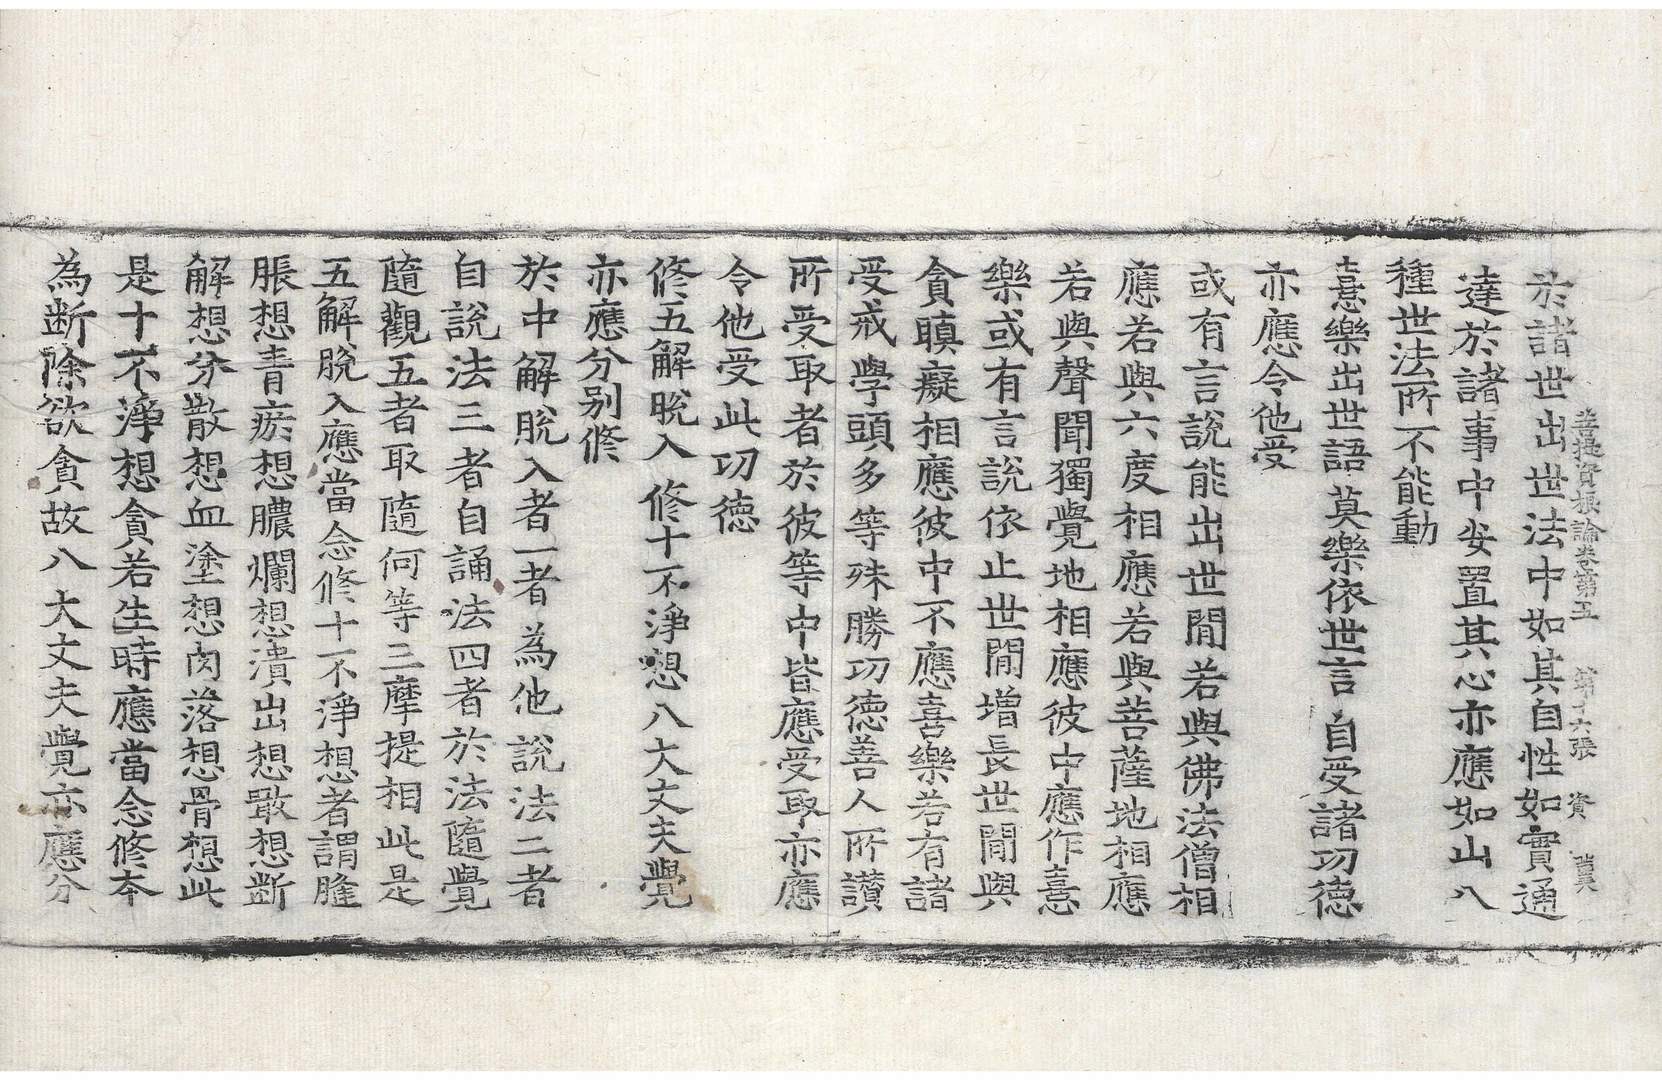 菩提資粮論卷第五　第十六張　資
於諸世出世法中如其自性如實通
達於諸事中安置其心亦應如山八
種世法所不能動
憙樂出世語　莫樂依世言　自受諸功德
亦應令他受
或有言說能出世間若與佛法僧相
應若與六度相應若與菩薩地相應
若與聲聞獨覺地相應彼中應作憙
樂或有言說依止世間增長世間與
貪瞋癡相應彼中不應喜樂若有諸
受戒學頭多等殊勝功德善人所讚
所受取者於彼等中皆應受取亦應
令他受此功德
修五解脫入　修十不淨想　八大丈夫覺
亦應分別修
於中解脫入者一者為他說法二者
自說法三者自誦法四者於法隨覺
隨觀五者取隨何等三摩提相此是
五解脫入應當念修十不淨想者謂膖
脹想青瘀想膿爛想潰出想噉想斷
解想分散想血塗想肉落想骨想此
是十不淨想貪若生時應當念修夲
為断除欲貪故八大丈夫覺亦應分